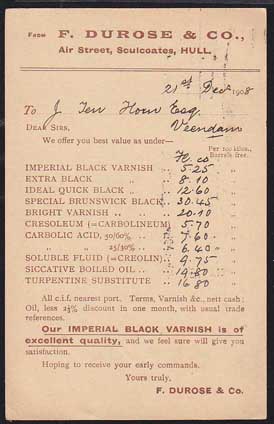 FROM F. DUROSE & CO.,
Air Street, Sculcoates, HULL.
21st Dec. 1908
To J. Ten Horn Esq.
Veendam
DEAR SIRS,
We offer you best value as under—
Per 100 kilos, Barrels free.
IMPERIAL BLACK VARNISH .. 5.25
EXTRA BLACK " .. 8.10
IDEAL QUICK BLACK .. .. 12.60
SPECIAL BRUNSWICK BLACK.. 30.45
BRIGHT VARNISH .. .. 20.10
CRESOLEUM (=CARBOLINEUM) 5.70
CARBOLIC ACID, 50/60% .. 7.60
" " 25/30% .. 6.40
SOLUBLE FLUID (=CREOLIN) 9.75
SICCATIVE BOILED OIL .. 19.80
TURPENTINE SUBSTITUTE .. 16.80
All c.i.f. nearest port. Terms, Varnish &c., nett cash;
Oil, less 2½% discount in one month, with usual trade
references.
Our IMPERIAL BLACK VARNISH is of
excellent quality, and we feel sure will give you
satisfaction.
Hoping to receive your early commands.
Yours truly,
F. DUROSE & Co.